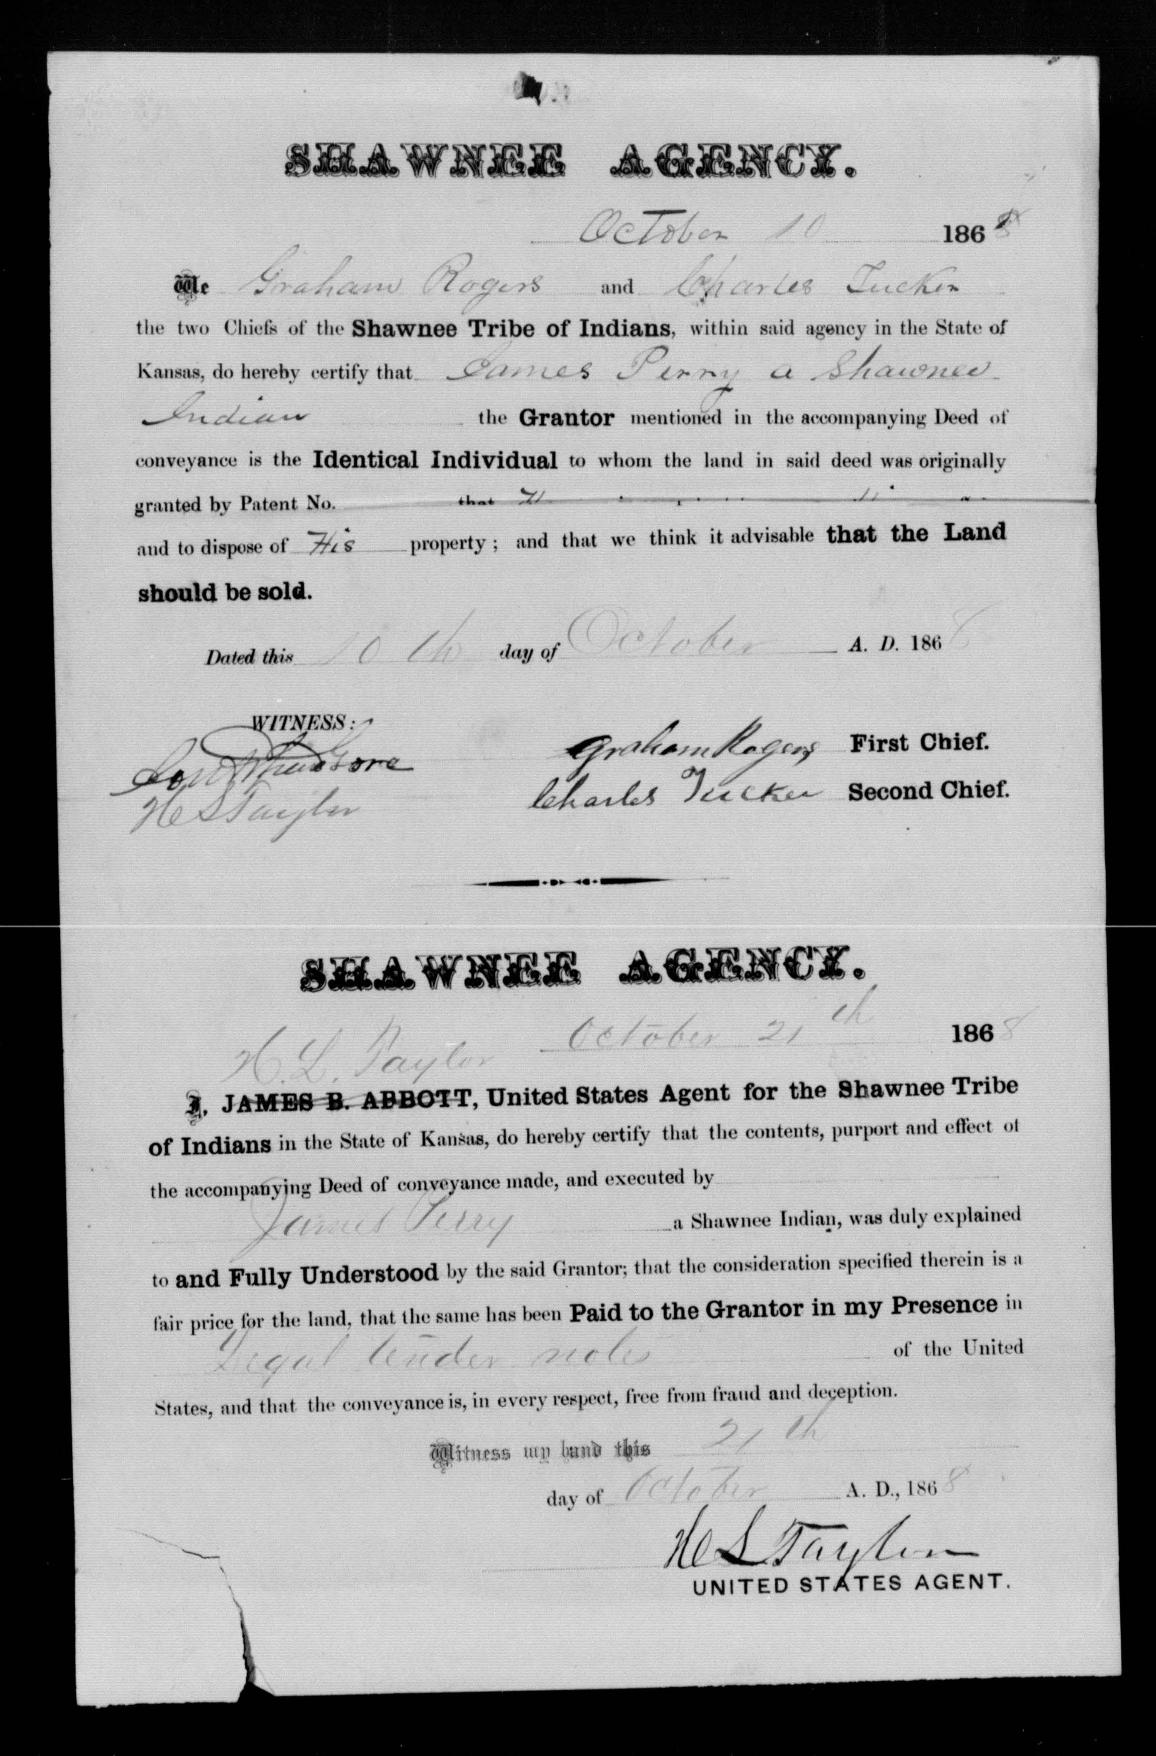 SHAWNEE AGENCY.
October 10 1868
We Graham Rogers and Charles Tucker
the two Chiefs of the Shawnee Tribe of Indians, within said agency in the State of
Kansas, do hereby certify that James Perry a Shawnee
Indian the Grantor mentioned in the accompanying Deed of
conveyance is the Identical Individual to whom the land in said deed was originally
granted by Patent No. that
and to dispose of His property; and that we think it advisable that the Land
should be sold.
Dated this 10 th day of October A. D. 1868
WITNESS:
Graham Rogers First Chief.
H L Taylor
Charles Tucker Second Chief.
SHAWNEE AGENCY.
October 21 th 1868
H. L. Taylor
I, JAMES B. ABBOTT, United States Agent for the Shawnee Tribe
of Indians in the State of Kansas, do hereby certify that the contents, purport and effect of
the accompanying Deed of conveyance made, and executed by
James Perry a Shawnee Indian, was duly explained
to and Fully Understood by the said Grantor; that the consideration specified therein is a
fair price for the land, that the same has been Paid to the Grantor in my Presence in
Legal tender notes of the United
States, and that the conveyance is, in every respect, free from fraud and deception.
Witness my hand this 21 th
day of October A. D., 1868
H L Taylor
UNITED STATES AGENT.